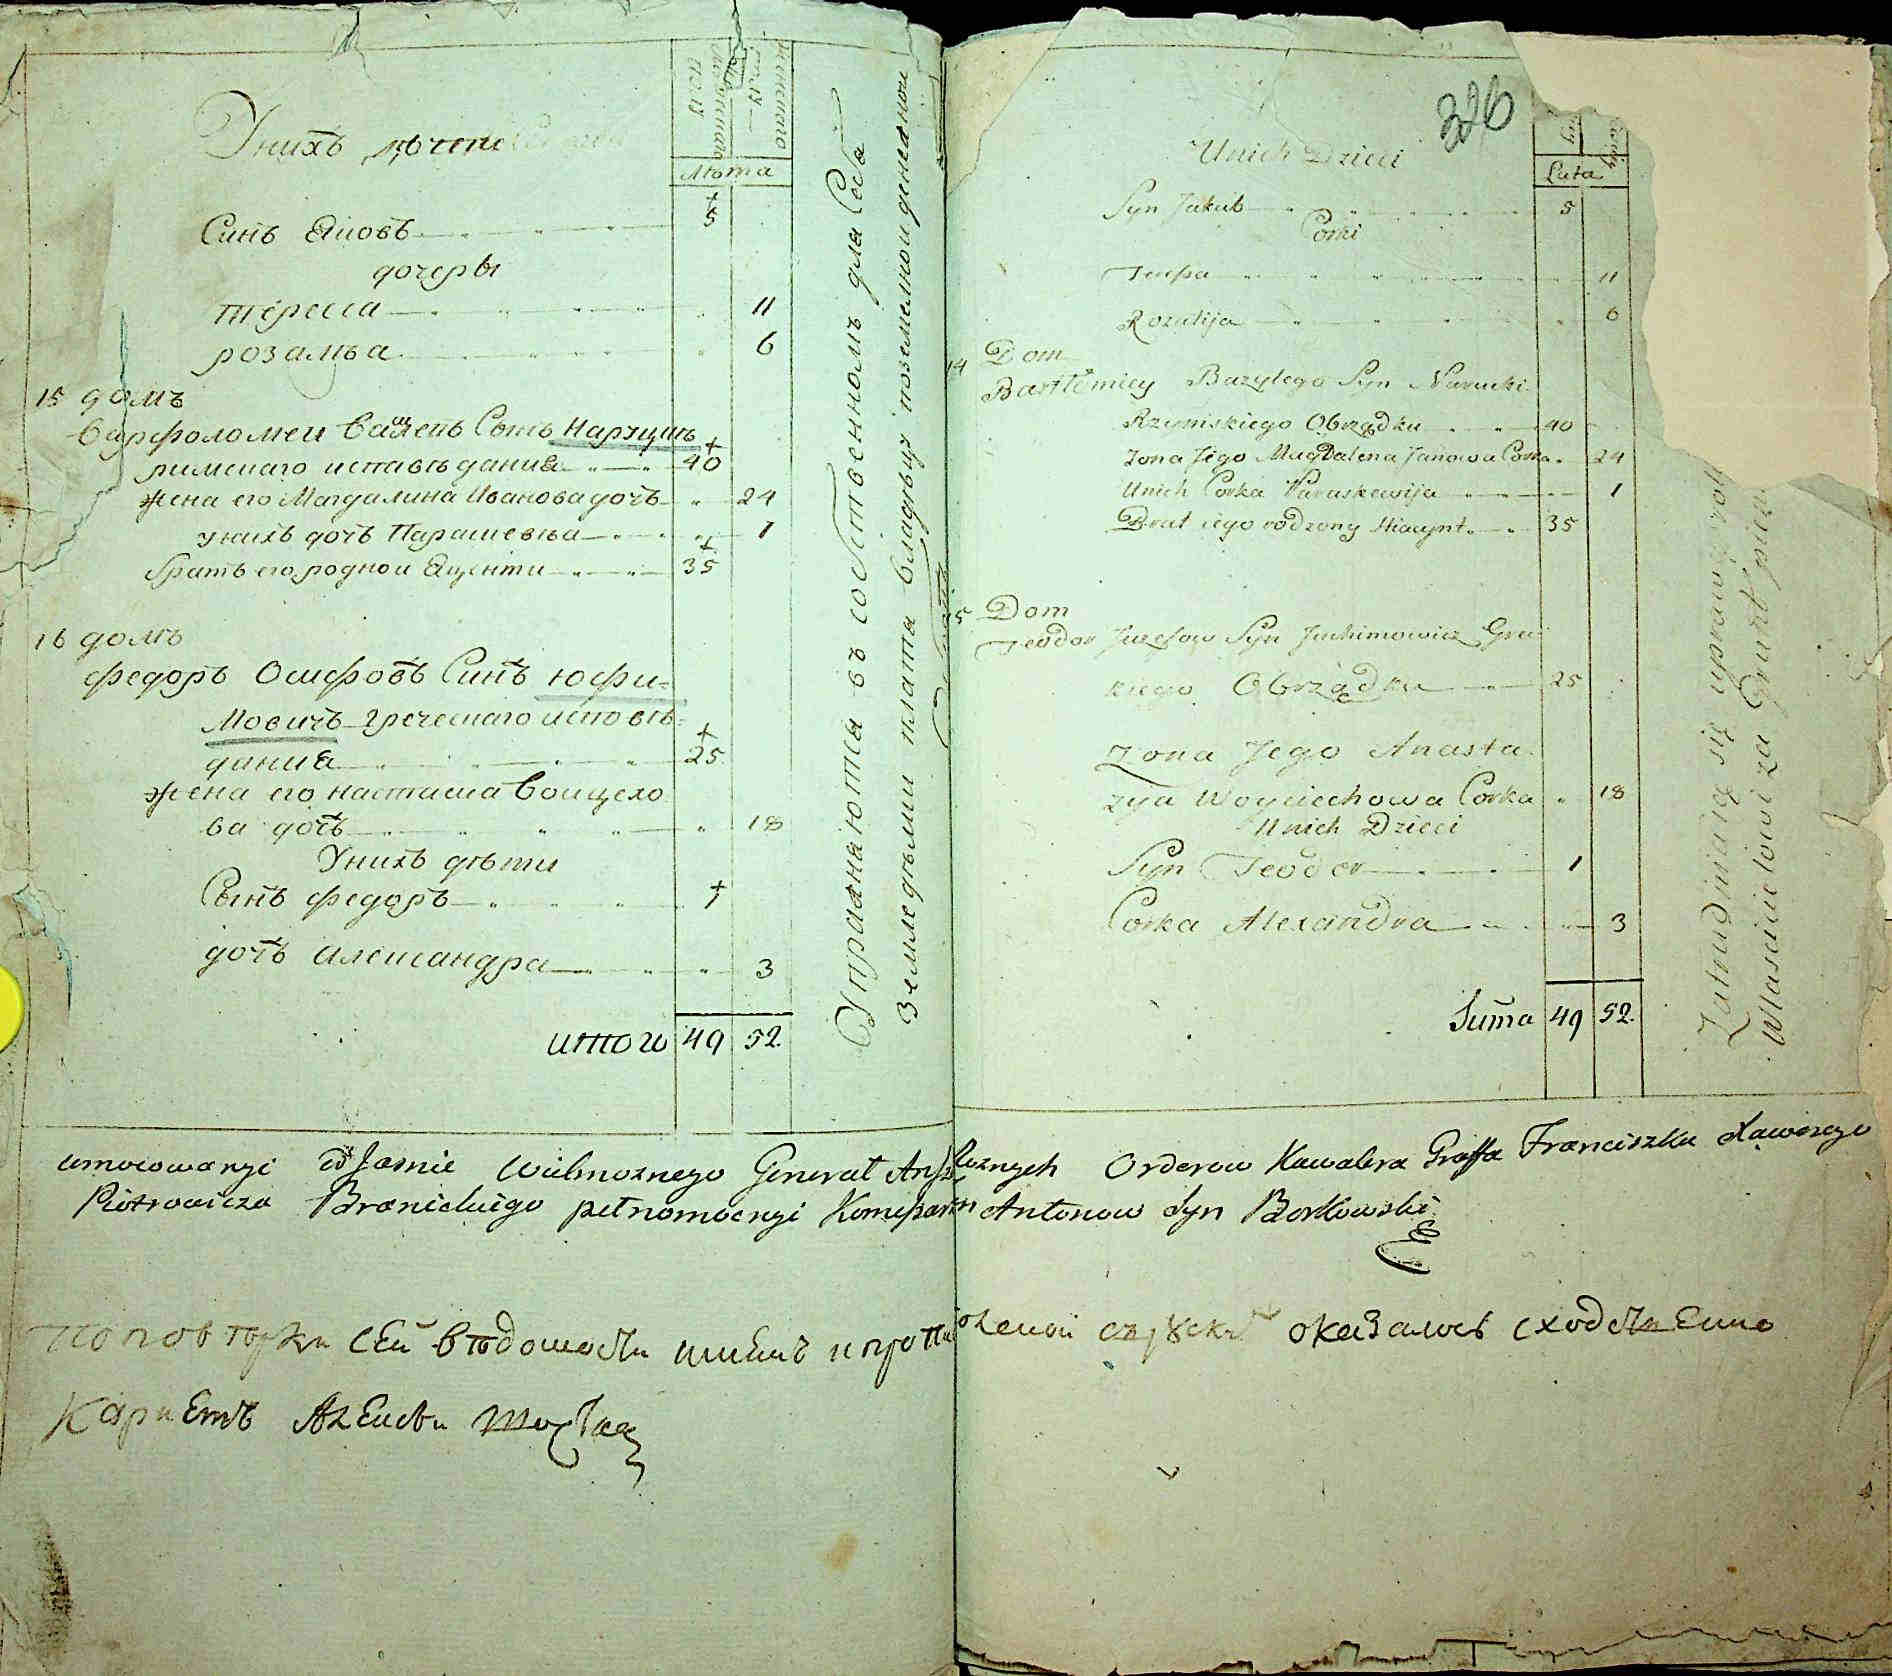 мужескаго
полу
женскаго
полу
Лѣта
Унихъ
Синъ Яковъ 5
дочеры
тересса 11
розалѣа 6
15 домъ
варфоломеи Сынъ Наруцкъ
римскаго исповѣдания 40
жена его Магдалина Иванова дочъ 24
унихъ дочъ Парашевѣа 1
братъ его роднои Яценти 35
16 домъ
федоръ Осифовъ Синъ юфи-
мовичъ греческаго исповѣ-
дания 25
жена его настасиа воицехо
ва дочъ 18
Унихъ дѣти
Сынъ федоръ 1
дочъ александра 3
итого 49 52
Упражняются въ собственномъ для Себя
Земледѣлии плата владѣльцу поземелнои денежнои
326
Unich Dzieci
Lata
Syn Jakub 5
Corki
Teresa 11
Rozalija 6
14 Dom
Bartłomiey Bazylego Syn Narucki
Rzymskiego Obrządku 40
Zona Jego Magdalena Janowa Corka 24
Unich Corka Paraskewija 1
Brat iego rodzony Hiacynt 35
15 Dom
Teodor Juzefow Syn Juchimowicz Gre-
kiego Obrządku 25
Zona Jego Anasta
zya Woyciechowa Corka 18
Unich Dzieci
Syn Teodor 1
Corka Alexandra 3
Suma 49 52
Zatrudniaią się uprawą roli
Właścicielowi za Grunt
umocowanyi od Jasnie Wielmoznego Generał Orderow Kawalera Graffa Franciszka Xawerego
Piotrowicza Branickiego pełnomocnyi Antonow Syn Borkowski
По повѣрки сеи вѣдомости оказалось сходственно